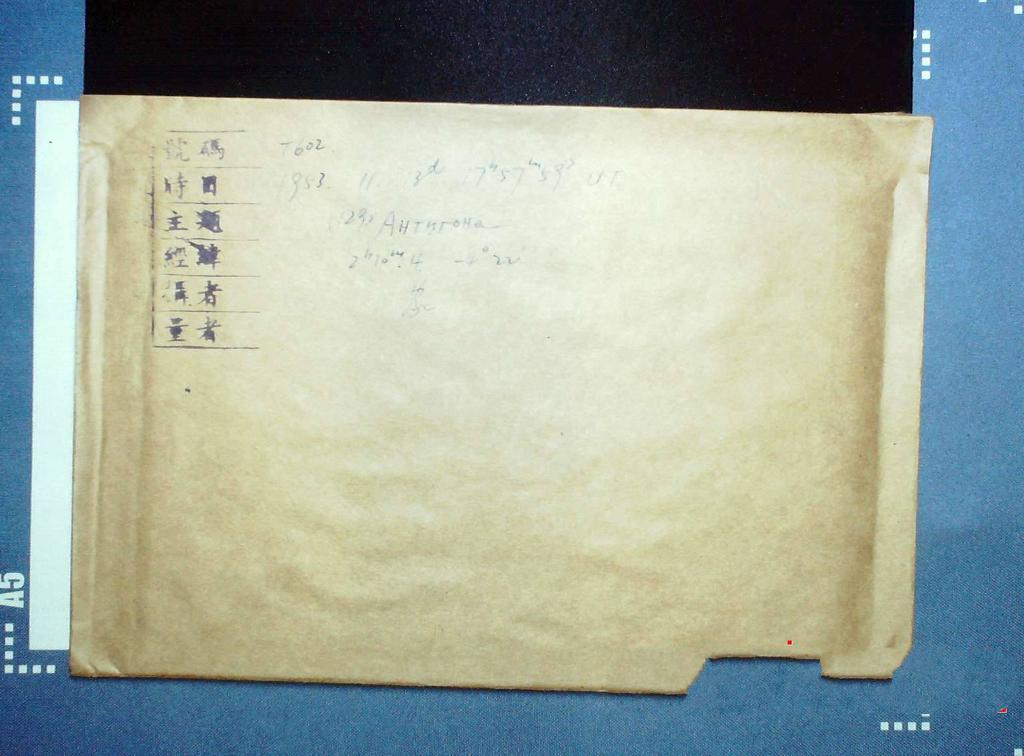 號碼 T602.
時日 1953. 11. 3ᵈ 17ʰ57ᵐ59ˢ UT
主題 (129) Антигона
經緯 2ʰ10ᵐ.4 -4°22'
攝者
量者
A5